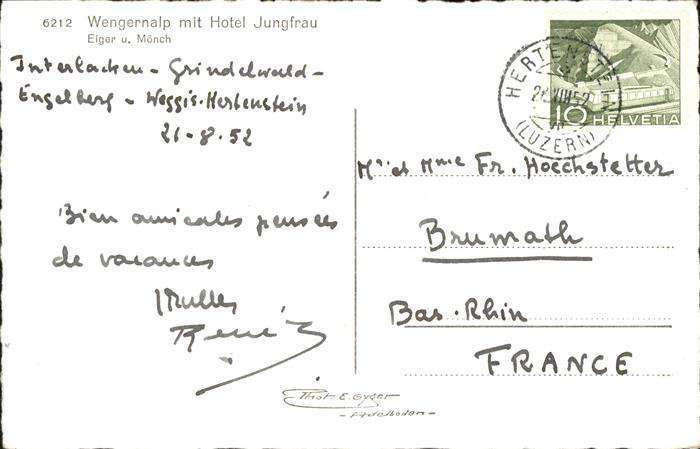 6212 Wengernalp mit Hotel Jungfrau
Eiger u. Mönch
Interlacken - Grindelwald -
Engelberg - Weggis-Hertenstein
21-8.52
Bien amicales pensées
de vacances
René
HERTENSTEIN
(LUZERN)
10 HELVETIA
Mr et Mme Fr. Hoechstetter
Brumath
Bas-Rhin
FRANCE
Phot. E. Gyger
- Adelboden -